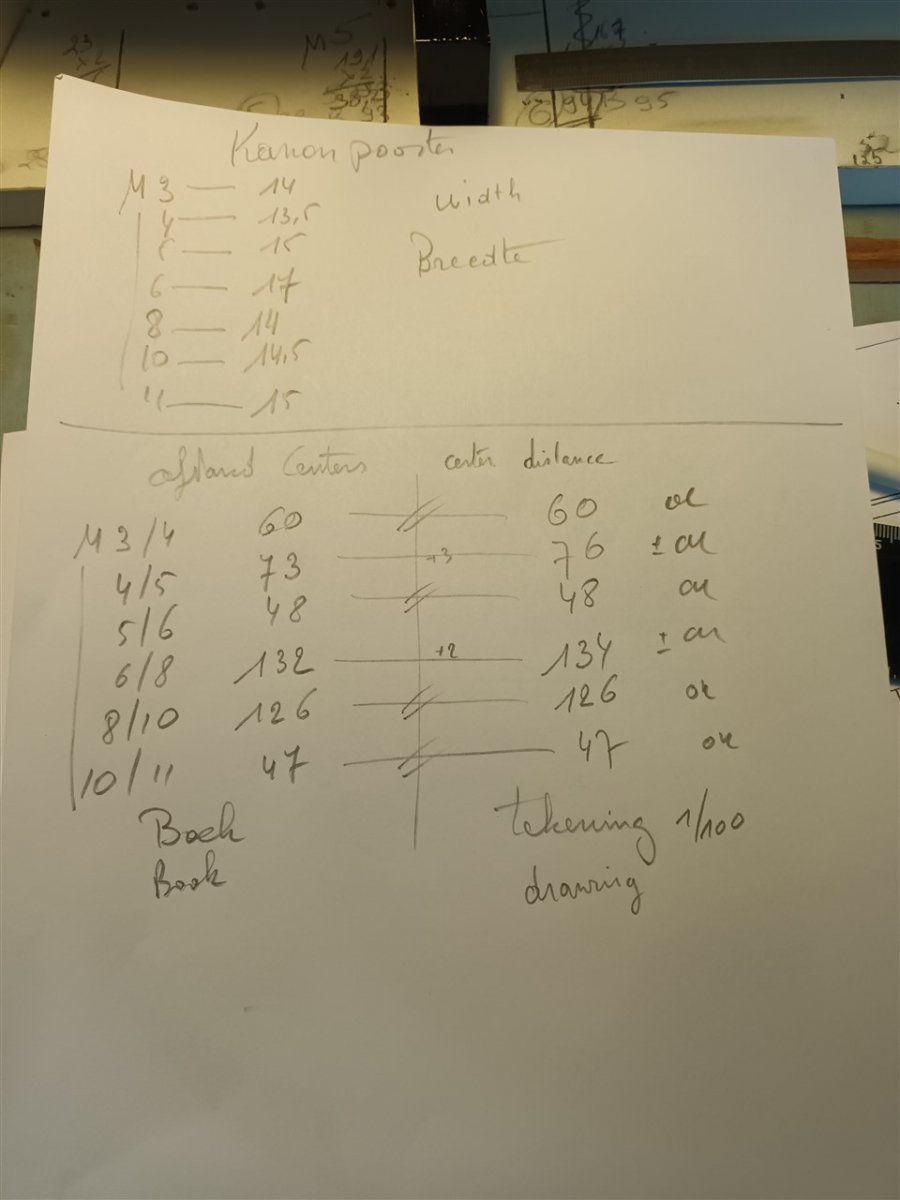 23
x2
M5
191
x2
167
95
125
Kanon poorten
M 3 — 14
width
4 — 13,5
5 — 15
Breedte
6 — 17
8 — 14
10 — 14,5
11 — 15
afstand Centers center distance
M 3/4 60 60 ok
4/5 73 +3 76 ± ok
5/6 48 48 ok
6/8 132 +2 134 ± ok
8/10 126 126 ok
10/11 47 47 ok
Boek tekening 1/100
Book drawing